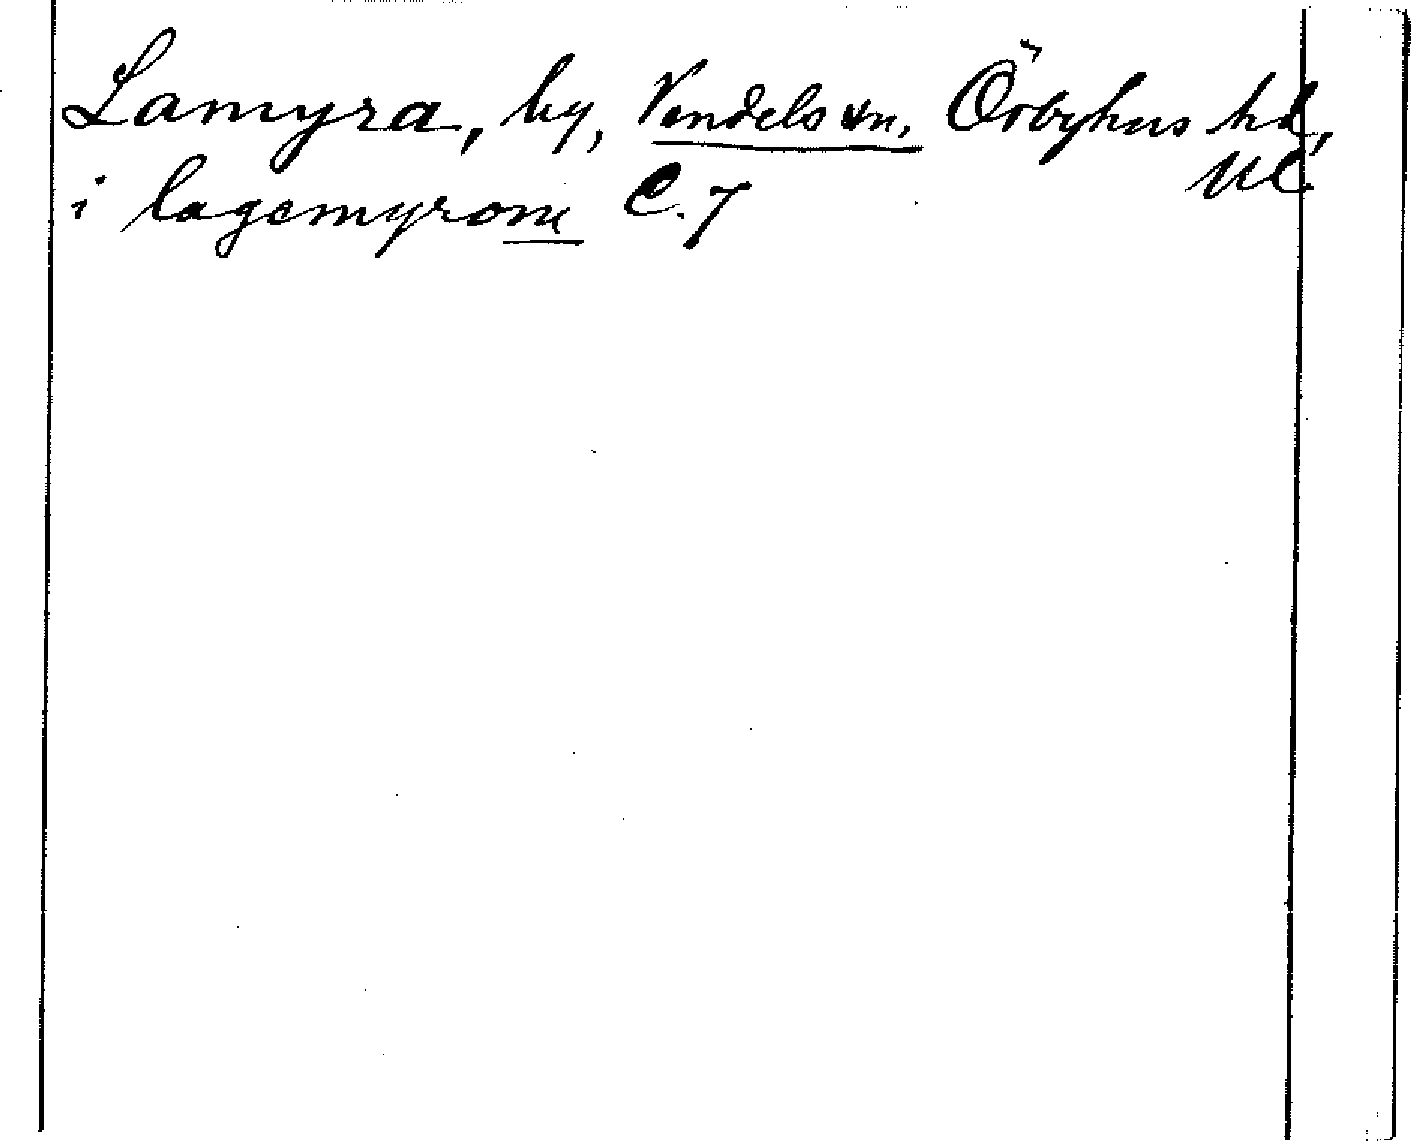 Lamyra, by, Vendels sn, Örbyhus hd,
i lagemyrom C. 7 Ul.